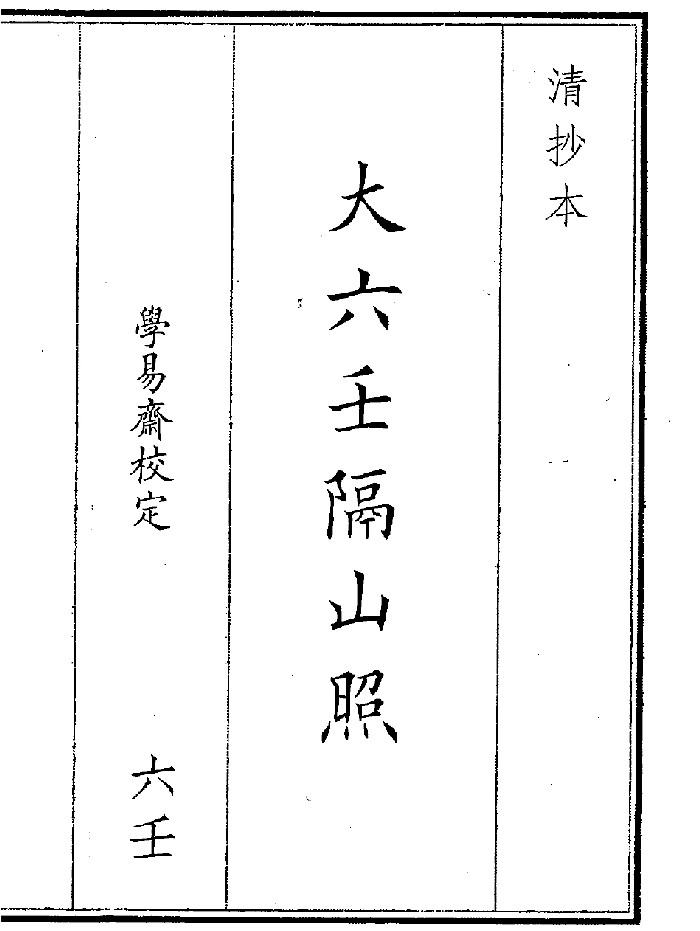 清抄本
大六壬隔山照
學易齋校定
六壬